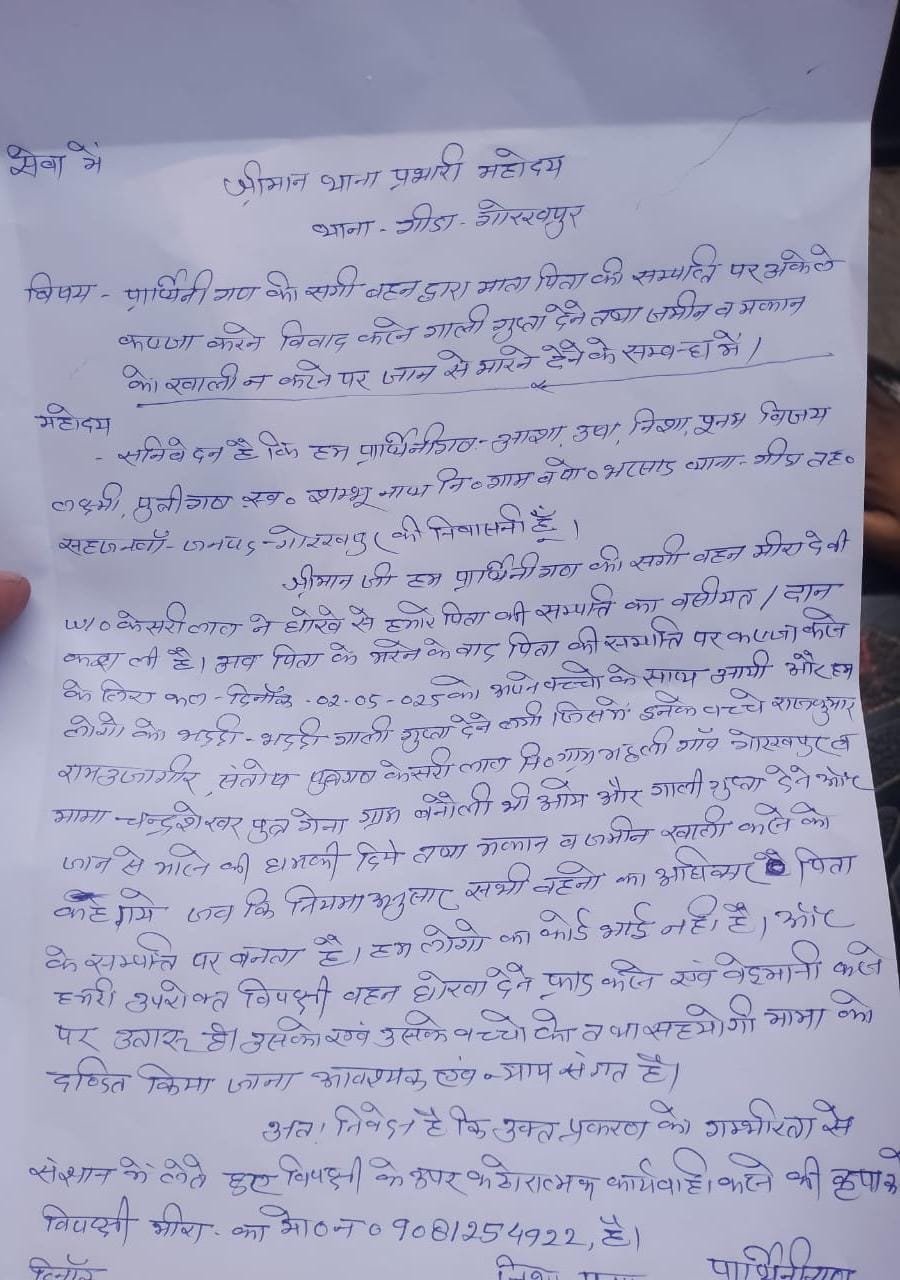 सेवा में
श्रीमान थाना प्रभारी महोदय
थाना - गीडा - गोरखपुर
बिषय - प्रार्थिनी गण की सगी बहन द्वारा माता पिता की सम्पत्ति पर अकेले
कब्जा करने विवाद करने गाली गुप्ता देने तथा जमीन व मकान
को खाली न करने पर जान से मारने देने के सम्बन्ध में /
महोदय
- सनिवेदन है कि हम प्रार्थिनीगण - आशा, उषा, निशा, पूनम विजय
लक्ष्मी, पुत्रीगण स्व० शम्भू नाथ नि० ग्राम व पो० भरसाड थाना - गीडा तह०
सहजनवाँ - जनपद - गोरखपुर की निवासनी हूँ ।
श्रीमान जी हम प्रार्थिनीगण की सगी बहन मीरा देवी
w/o केसरी लाल ने धोखे से हमारे पिता की सम्पत्ति का वसीयत / दान
करा ली है। अब पिता के मरने के बाद पिता की सम्पत्ति पर कब्जा करने
के लिए कल - दिनाँक - 02-05-025 को अपने बच्चो के साथ आयी और हम
लोगो को भद्दी - भद्दी गाली गुप्ता देने लगी जिसमें इनके बच्चे राजकुमार
रामउजागीर, संतोष पुत्रगण केसरी लाल नि० ग्राम महुली गाँव गोरखपुर व
मामा - चन्द्रशेखर पुत्र गेना ग्राम बनौली भी आये और गाली गुप्ता देने और
जान से मारने की धमकी दिये तथा मकान व जमीन खाली करने को
कह गये जब कि नियमानुसार सभी बहनो का अधिकार है पिता
के सम्पत्ति पर बनता है। हम लोगो का कोई भाई नही है। और
हमरी उपरोक्त विपक्षी बहन धोखा देने फ्राड करने एवं बेइमानी करने
पर उतारू है। उसको एवं उसके बच्चो को तथा सहयोगी मामा को
दण्डित किया जाना आवश्यक एवं न्याय संगत है।
अतः निवेदन है कि उक्त प्रकरण को गम्भीरता से
संज्ञान में लेते हुए विपक्षी के उपर कठोरात्मक कार्यवाही करने की कृपा करे
विपक्षी मीरा - का मो० न० 9081254922, है।
दिनाँक निशा प्रार्थिनीगण